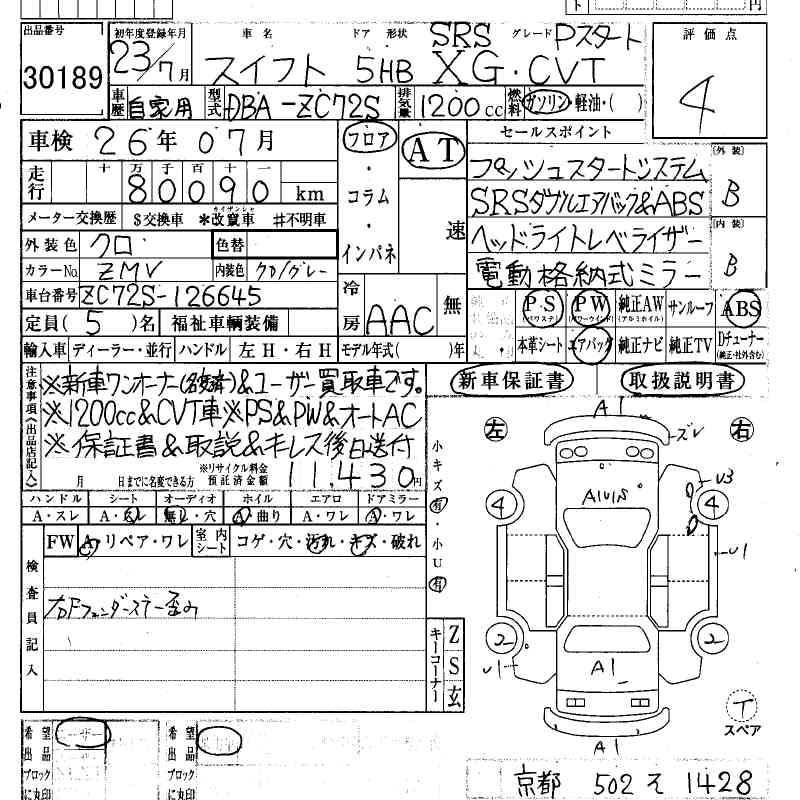 ト 円
出品番号 初年度登録年月 車名 ドア形状 グレード 評価点
30189 23/7月 スイフト 5HB SRS Pスタート XG・CVT 4
車歴 自家用 型式 DBA-ZC72S 排気量 1200cc 燃料 ガソリン・軽油・( )
車検 26年07月 フロア AT セールスポイント
走行 十万千百十一 80090 km
プッシュスタートシステム 外装 B
SRSダブルエアバック&ABS
メーター交換歴 $交換車 *改竄車 #不明車 コラム 速
外装色 クロ 色替 インパネ ヘッドライトレベライザー 内装 B
カラーNo. ZMV 内装色 クロ/グレー 電動格納式ミラー
車台番号 ZC72S-126645 冷房 AAC 無
PS (パワステ) PW (パワーウインド) 純正AW (アルミホイル) サンルーフ ABS
定員( 5 )名 福祉車輌装備
輸入車 ディーラー・並行 ハンドル 左H・右H モデル年式( )年
本革シート エアバッグ 純正ナビ 純正TV Dチューナー (純正・社外含む)
新車保証書 取扱説明書
注意事項(出品店記入)
※新車ワンオーナー(名変済)&ユーザー買取車です。
※1200cc&CVT車※PS&PW&オートAC
※保証書&取説&キレス後日送付
月 日までに名変できる方 ※リサイクル料金預託済金額 11,430円
ハンドル シート オーディオ ホイル エアロ ドアミラー
A・スレ A・スレ 無し・穴 A・曲り A・ワレ A・ワレ
FW A・リペア・ワレ 室内シート コゲ・穴・汚れ・キズ・破れ
検査員記入
右Fフェンダーステー歪み
小キズ有・小U有
キーコーナー Z S 玄
左 A1 ズレ 右
A1U1S U3
4 4
U1
2 2
U1 A1
A1
T
スペア
希望出品ブロックに丸印 希望出品ブロックに丸印
京都 502 そ 1428